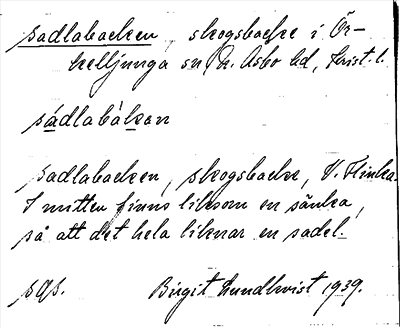 sadlabacken, skogsbacke i Ör-
kelljunga sn N. Åsbo hd, Krist. l.
sádlabàkan
sadlabacken, skogsbacke, V. Flinka.
I mitten finns liksom en sänka,
så att det hela liknar en sadel.
sgs. Birgit Lundkvist 1939.